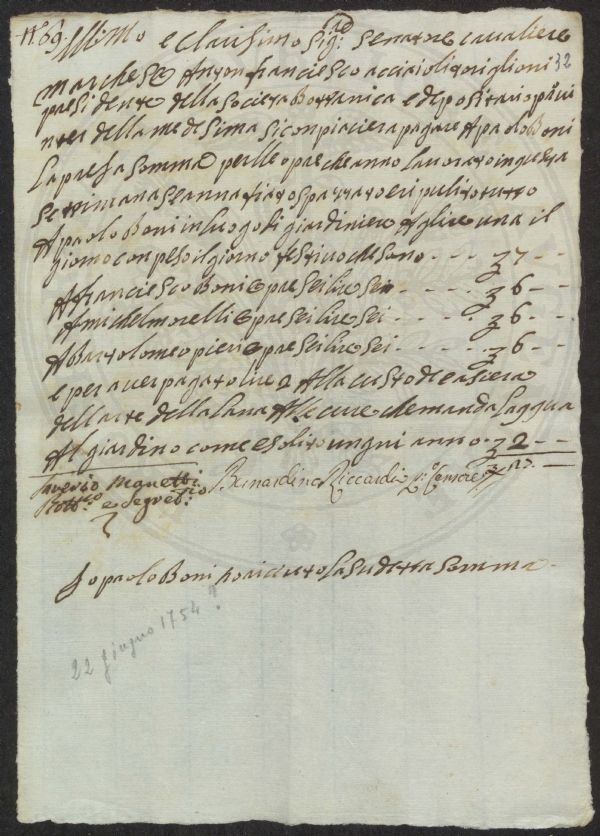 N.º 69. Illmo e Clarisimo Sig.re Senatore Cavaliere
32
Marchese Anton Franciesco Acciaioli Toriglioni
presidente della Società Bottanica e depositario
della medesima si conpiacierà pagare A paolo Boni
la presa somma per lle opre che anno lavorato in questa
settimana e anna spazzato e ripulito tutto
A paolo Boni in luogo di giardiniere A llire una il
giorno conpeso il giorno festivo che sono - - - £ 7 - -
A franciesco Boni opre sei lire sei - - - - - £ 6 - -
A michel morelli opre sei lire sei - - - - - £ 6 - -
A Bartolomeo pieri opre sei lire sei - - - - £ 6 - -
e per aver pagato lire 2 Alla custode e asiera
dell'arte della lana Alle cure che manda l'aggua
Al giardino come è solito ungni anno - £ 2 - -
Saverio Manetti Bernardino Riccardi
Dott.re e Segret.rio
Io paolo Boni ò riceuto la sudetta somma -
22 giugno 1754?